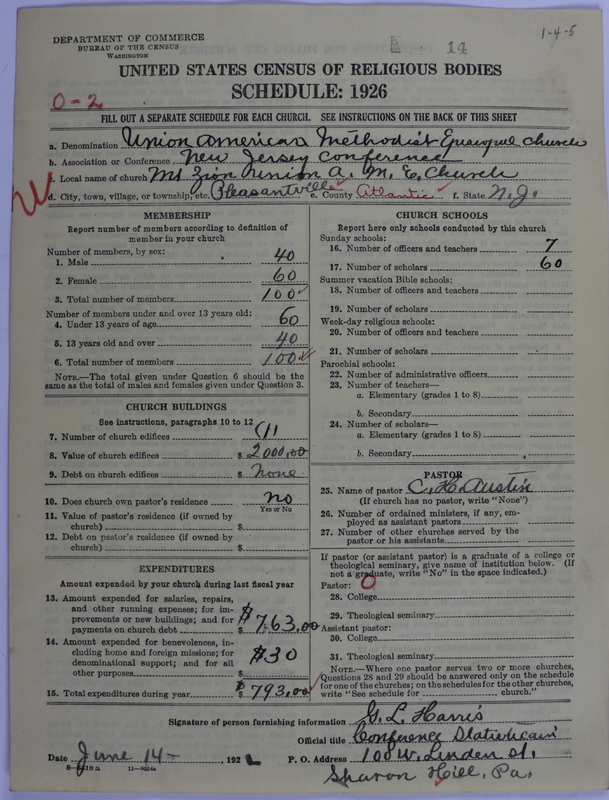 1-4-5
DEPARTMENT OF COMMERCE
BUREAU OF THE CENSUS
WASHINGTON
14
UNITED STATES CENSUS OF RELIGIOUS BODIES
SCHEDULE: 1926
0-2
FILL OUT A SEPARATE SCHEDULE FOR EACH CHURCH. SEE INSTRUCTIONS ON THE BACK OF THIS SHEET
a. Denomination Union American Methodist Episcopal Church
b. Association or Conference New Jersey Conference
c. Local name of church Mt Zion Union A. M. E. Church
d. City, town, village, or township, etc. Pleasantville e. County Atlantic f. State N.J.
MEMBERSHIP
Report number of members according to definition of
member in your church
Number of members, by sex:
1. Male 40
2. Female 60
3. Total number of members 100
Number of members under and over 13 years old:
4. Under 13 years of age 60
5. 13 years old and over 40
6. Total number of members 100
NOTE.—The total given under Question 6 should be the
same as the total of males and females given under Question 3.
CHURCH BUILDINGS
See instructions, paragraphs 10 to 12
7. Number of church edifices (1)
8. Value of church edifices $ 2000.00
9. Debt on church edifices $ None
10. Does church own pastor's residence no
Yes or No
11. Value of pastor's residence (if owned by
church) $
12. Debt on pastor's residence (if owned by
church) $
EXPENDITURES
Amount expended by your church during last fiscal year
13. Amount expended for salaries, repairs,
and other running expenses; for im-
provements or new buildings; and for
payments on church debt $ $763.00
14. Amount expended for benevolences, in-
cluding home and foreign missions; for
denominational support; and for all
other purposes $ $30
15. Total expenditures during year $ $793.00
CHURCH SCHOOLS
Report here only schools conducted by this church
Sunday schools:
16. Number of officers and teachers 7
17. Number of scholars 60
Summer vacation Bible schools:
18. Number of officers and teachers
19. Number of scholars
Week-day religious schools:
20. Number of officers and teachers
21. Number of scholars
Parochial schools:
22. Number of administrative officers
23. Number of teachers—
a. Elementary (grades 1 to 8)
b. Secondary
24. Number of scholars—
a. Elementary (grades 1 to 8)
b. Secondary
PASTOR
25. Name of pastor C. H. Austin
(If church has no pastor, write "None")
26. Number of ordained ministers, if any, em-
ployed as assistant pastors
27. Number of other churches served by the
pastor or his assistants
If pastor (or assistant pastor) is a graduate of a college or
theological seminary, give name of institution below. (If
not a graduate, write "No" in the space indicated.)
Pastor: 0
28. College
29. Theological seminary
Assistant pastor:
30. College
31. Theological seminary
NOTE.—Where one pastor serves two or more churches,
Questions 28 and 29 should be answered only on the schedule
for one of the churches; on the schedules for the other churches,
write "See schedule for church."
Signature of person furnishing information G. L. Harris
Official title Conference Statistician
Date June 14- 192 P. O. Address 100 W. Linden St.
11—9054a Sharon Hill, Pa.